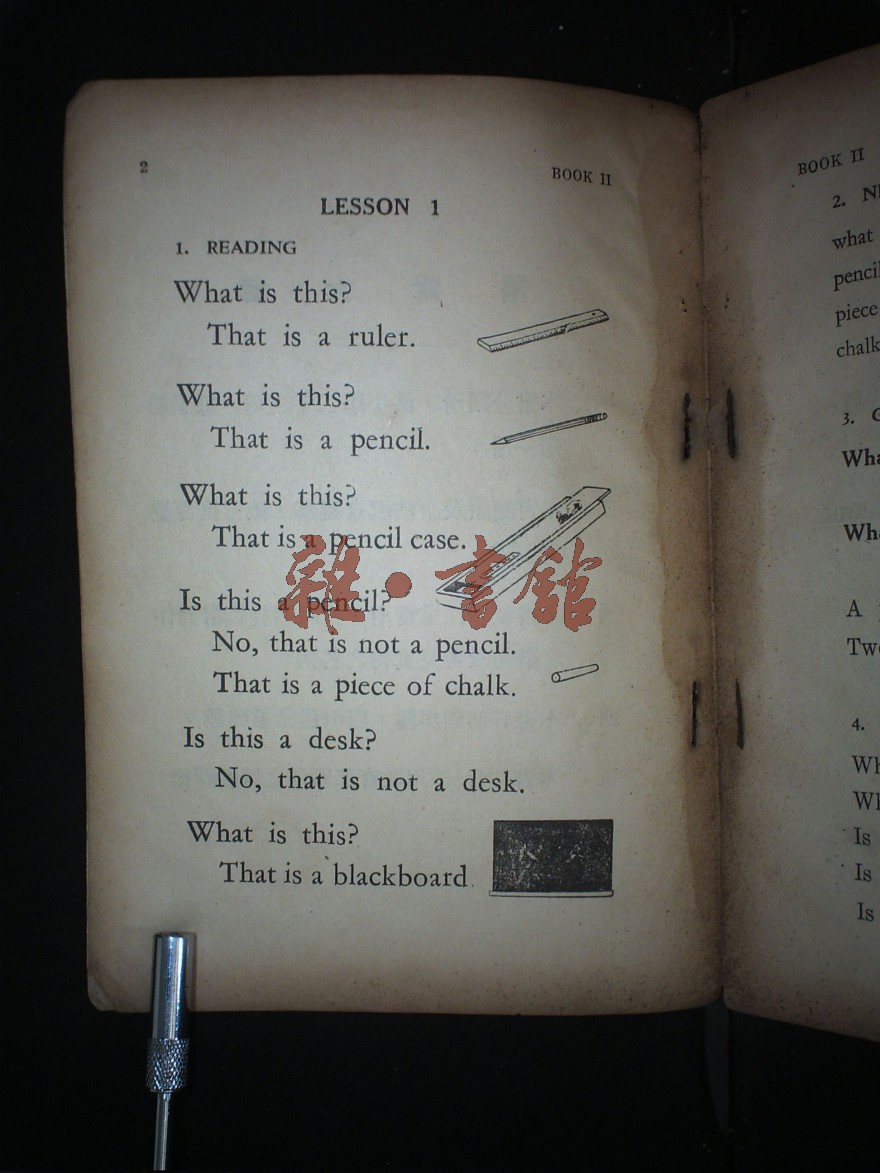 2
BOOK II
LESSON 1
1. READING
What is this?
That is a ruler.
What is this?
That is a pencil.
What is this?
That is a pencil case.
Is this a pencil?
No, that is not a pencil.
That is a piece of chalk.
Is this a desk?
No, that is not a desk.
What is this?
That is a blackboard.
雜·書館
BOOK II
2.
what
piece
3.
A
4.
Is
Is
Is